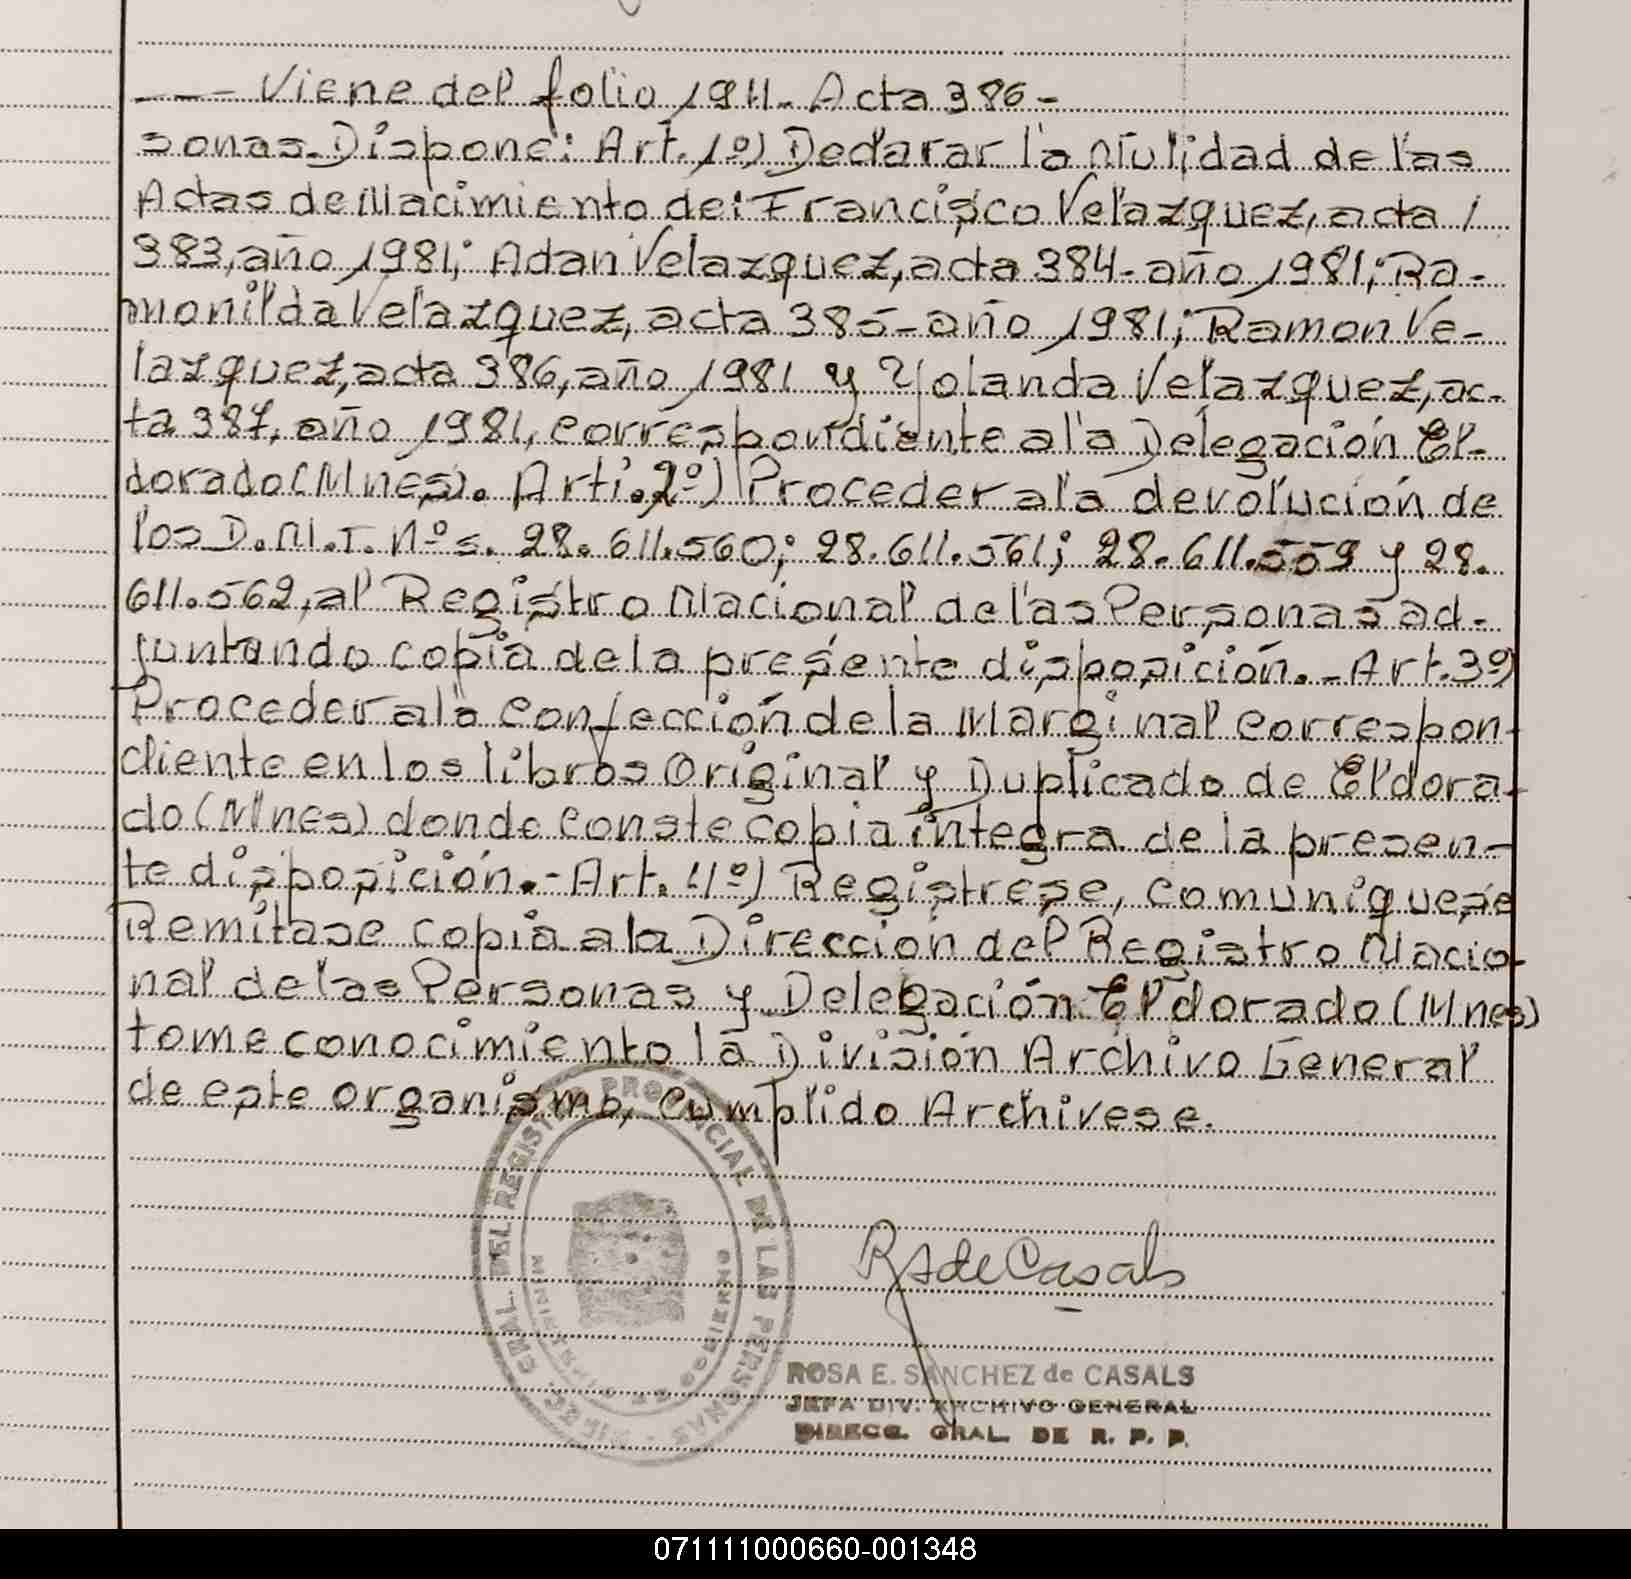 ——— Viene del folio 1911. Acta 386 -
sonas. Dispone: Art. 1º) Declarar la Nulidad de las
Actas de Nacimiento de: Francisco Velazquez, acta /
383, año 1981; Adan Velazquez, acta 384 - año 1981; Ra-
monilda Velazquez, acta 385 - año 1981; Ramon Ve-
lazquez, acta 386, año 1981 y Yolanda Velazquez, ac-
ta 387, año 1981, correspondiente a la Delegación El-
dorado (Mnes). Arti. 2º) Proceder a la devolución de
los D.N.I. Nºs. 28.611.560; 28.611.561; 28.611.559 y 28.
611.562, al Registro Nacional de las Personas ad-
juntando copia de la presente disposición. - Art. 3º)
Proceder a la confección de la Marginal correspon-
diente en los libros Original y Duplicado de Eldora-
do (Mnes) donde conste copia íntegra de la presen-
te disposición. - Art. 4º) Registrese, comuniquese
Remítase copia a la Dirección del Registro Nacio-
nal de las Personas y Delegación Eldorado (Mnes)
tome conocimiento la División Archivo General
de este organismo, Cumplido Archivese.
DIREC. GRAL. DEL REGISTRO PROVINCIAL DE LAS PERSONAS
MINISTERIO DE GOBIERNO
RSdeCasals
ROSA E. SANCHEZ de CASALS
JEFA DIV. ARCHIVO GENERAL
DIRECC. GRAL. DE R. P. P.
071111000660-001348